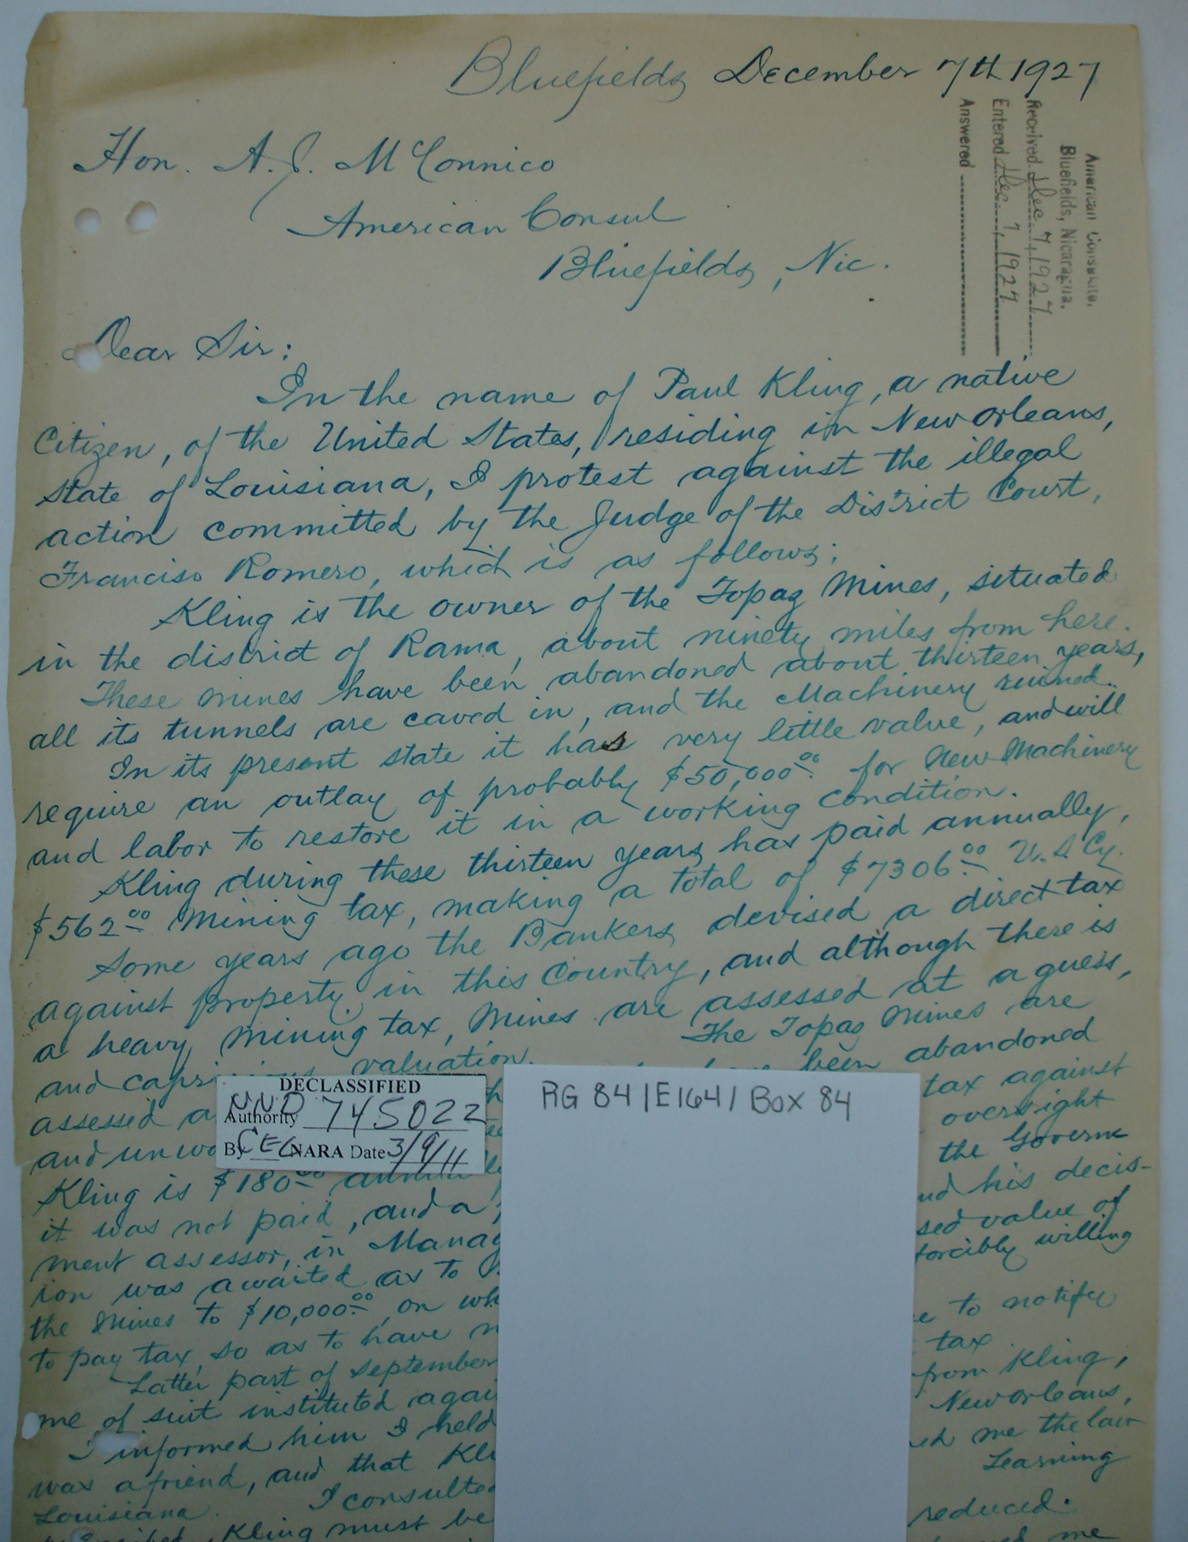 Bluefields December 7th 1927
American Consulate,
Bluefields, Nicaragua.
Received Dec 7, 1927
Entered Dec. 7, 1927
Answered
Hon. A. J. McConnico
American Consul
Bluefields, Nic.
Dear Sir:
In the name of Paul Kling, a native
Citizen, of the United States, residing in New Orleans,
State of Louisiana, I protest against the illegal
action committed by the Judge of the District Court,
Francisco Romero, which is as follows:
Kling is the owner of the Topaz Mines, situated
in the district of Rama, about ninety miles from here.
These mines have been abandoned about thirteen years,
all its tunnels are caved in, and the Machinery ruined.
In its present state it has very little value, and will
require an outlay of probably $50,000.00 for New Machinery
and labor to restore it in a working condition.
Kling during these thirteen years has paid annually,
$562.00 Mining tax, making a total of $7306.00 U.S Cy.
Some years ago the Bankers devised a direct tax
against property in this Country, and although there is
a heavy mining tax, Mines are assessed at a guess,
and capricious valuation. The Topaz Mines are
assessed a been abandoned
and unwo tax against
Kling is $180.00 oversight
it was not paid, and a the Govern
ment assessor, in Manag and his decis-
ion was awaited as to sed value of
the Mines to $10,000.00, on wh forcibly willing
to pay tax, so as to have n
Latter part of September e to notify
me of suit instituted agai tax
I informed him I held from Kling,
was a friend, and that Kli New Orleans,
Louisiana. I consulted ed me the law
Kling must be Learning
reduced.
me
DECLASSIFIED
Authority NND 745022
By CEC NARA Date 3/9/11
RG 84/E164/Box 84